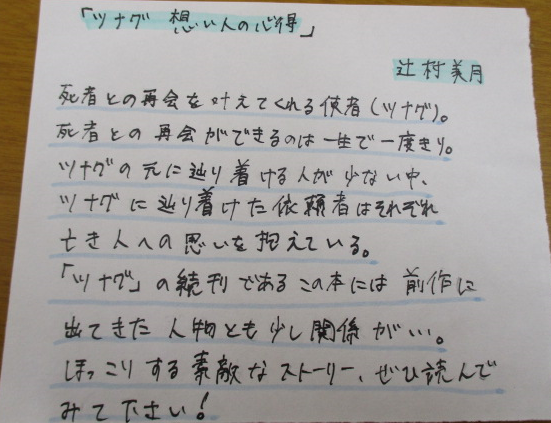 「ツナグ 想い人の心得」
辻村美月
死者との再会を叶えてくれる使者(ツナグ)。
死者との再会ができるのは一生で一度きり。
ツナグの元に辿り着ける人が少ない中、
ツナグに辿り着けた依頼者はそれぞれ
亡き人への思いを抱えている。
「ツナグ」の続刊であるこの本には前作に
出てきた人物とも少し関係が…。
ほっこりする素敵なストーリー、ぜひ読んで
みて下さい!